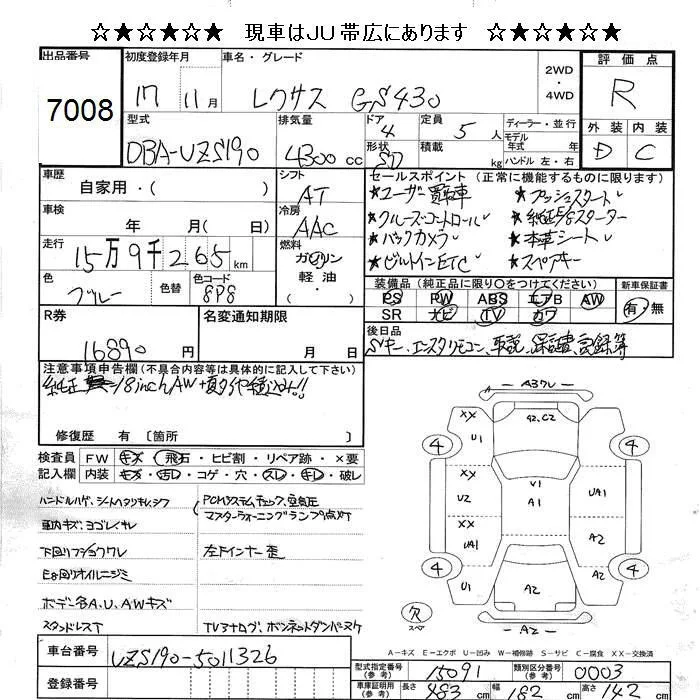 ☆★☆★☆★ 現車はJU帯広にあります ☆★☆★☆★
出品番号
7008
初度登録年月
17 11月
車名・グレード
レクサス GS430
2WD
・
4WD
評価点
R
外装 内装
D C
型式
DBA-UZS190
排気量
4300 cc
ドア
4
形状
SD
定員
5 人
積載
kg
ディーラー・並行
モデル
年式 年
ハンドル 左・右
車歴
自家用・( )
車検
年 月( 日)
走行
15万9千265 km
色
ブルー
色替
色コード
8P8
シフト
AT
冷房
AAC
燃料
ガソリン
軽油
・( )
セールスポイント (正常に機能するものに限ります)
★ユーザー買取車 ★プッシュスタート
★クルーズコントロール ★純正E/gスターター
★バックカメラ ★本革シート
★ビルトインETC ★スペアキー
装備品 (純正品に限り○をつけてください)
PS PW ABS エアB AW
SR ナビ TV カワ
新車保証書
有・無
R券
16890 円
名変通知期限
月 日
後日品
Sキー、エンスタリモコン、車説、保証書、記録簿
注意事項申告欄(不具合内容等は具体的に記入して下さい)
純正 18inchAW+夏タイヤ積込み!!
修復歴 有 〔箇所 〕
検査員
記入欄
FW キズ・飛石・ヒビ割・リペア跡・×要
内装 キズ・汚レ・コゲ・穴・スレ・キレ・破レ
ハンドルハゲ、シートヘタリキレ、シワ
車内キズ、ヨゴレ、キレ
下回りフショクワレ
E/g回りオイルニジミ
ボデー各A、U、AWキズ
スタンドレスT
PCMシステムチェック、空気圧
マスターウォーニングランプ点灯
左Fインナー歪
TVアナログ、ボンネットダンパーヌケ
A3ワレ
XX U1
A2、C2
4 4
XX U2
V1
A1
UA1
XX UA1
A2
4 4
U1
A2
A2
欠
スペア
A2
A-キズ E-エクボ U-凹み W-補修跡 S-サビ C-腐食 XX-交換済
車台番号
UZS190-5011326
登録番号
型式指定番号
(参考)
15091
類別区分番号
(参考)
0003
車庫証明用
(参考)
長さ
483 cm
幅
182 cm
高さ
142 cm